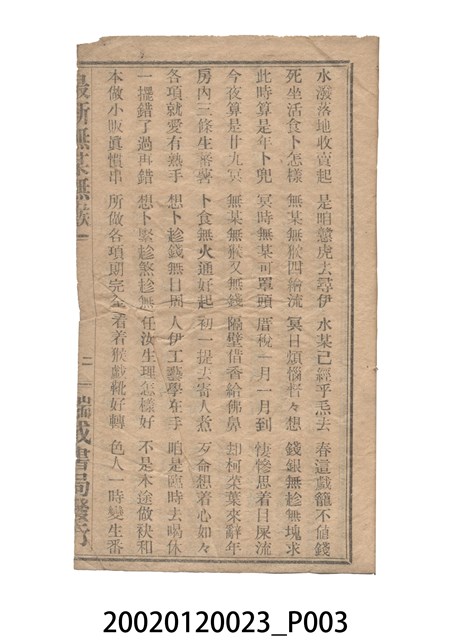 水潑落地收賣起 是咱憨虎去尋伊 水某已經乎恁去 春這戲籠不值錢
死坐活食卜怎樣 無某無猴四綸流 冥日煩惱暫々想 錢銀無趁無塊求
此時算是年卜兜 冥時無某可罩頭 厝稅一月一月到 悽慘思着目屎流
今夜算是廿九冥 無某無猴又無錢 隔壁借香給佛鼻 却柯菜葉來辭年
房內三條生番薯 卜食無火通好起 初一提去寄人煮 歹命想着心如々
各項就愛有熟手 想卜趁錢無日周 人伊工藝學在手 咱是臨時去喝休
一擺錯了過再錯 想卜緊趁煞趁無 任汝生理怎樣好 不是本途做袂和
本做小販眞慣串 所做各項朗完全 看着猴戲靴好轉 色人一時變生番
最新無某無猴歌 二 瑞成書局發行
20020120023_P003